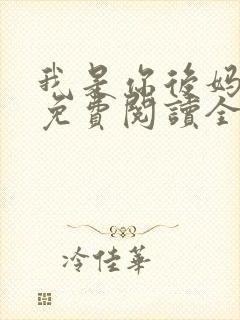 我是你後妈
免費閱讀全
冷佳華